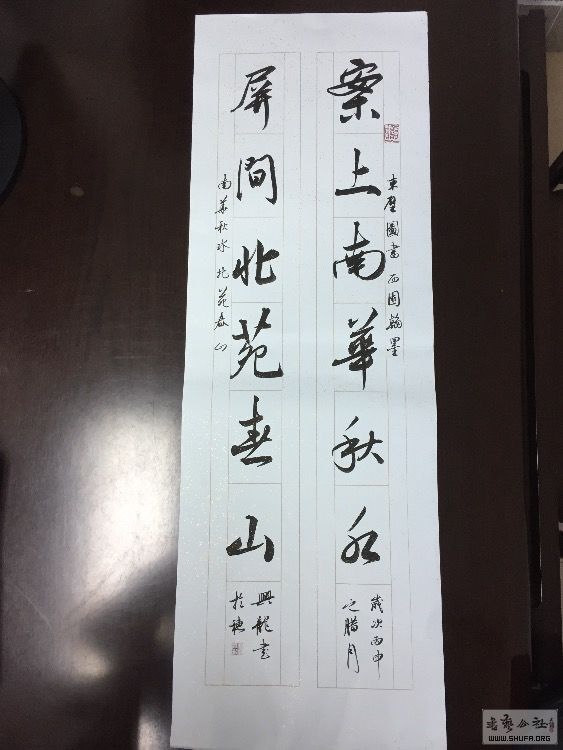 案上南華秋水
東壁圖書西園翰墨
歲次丙申
之腊月
屏間北苑春山
南華秋水北苑春山
興龍書
於穗
書藝公社
WWW.SHUFA.ORG